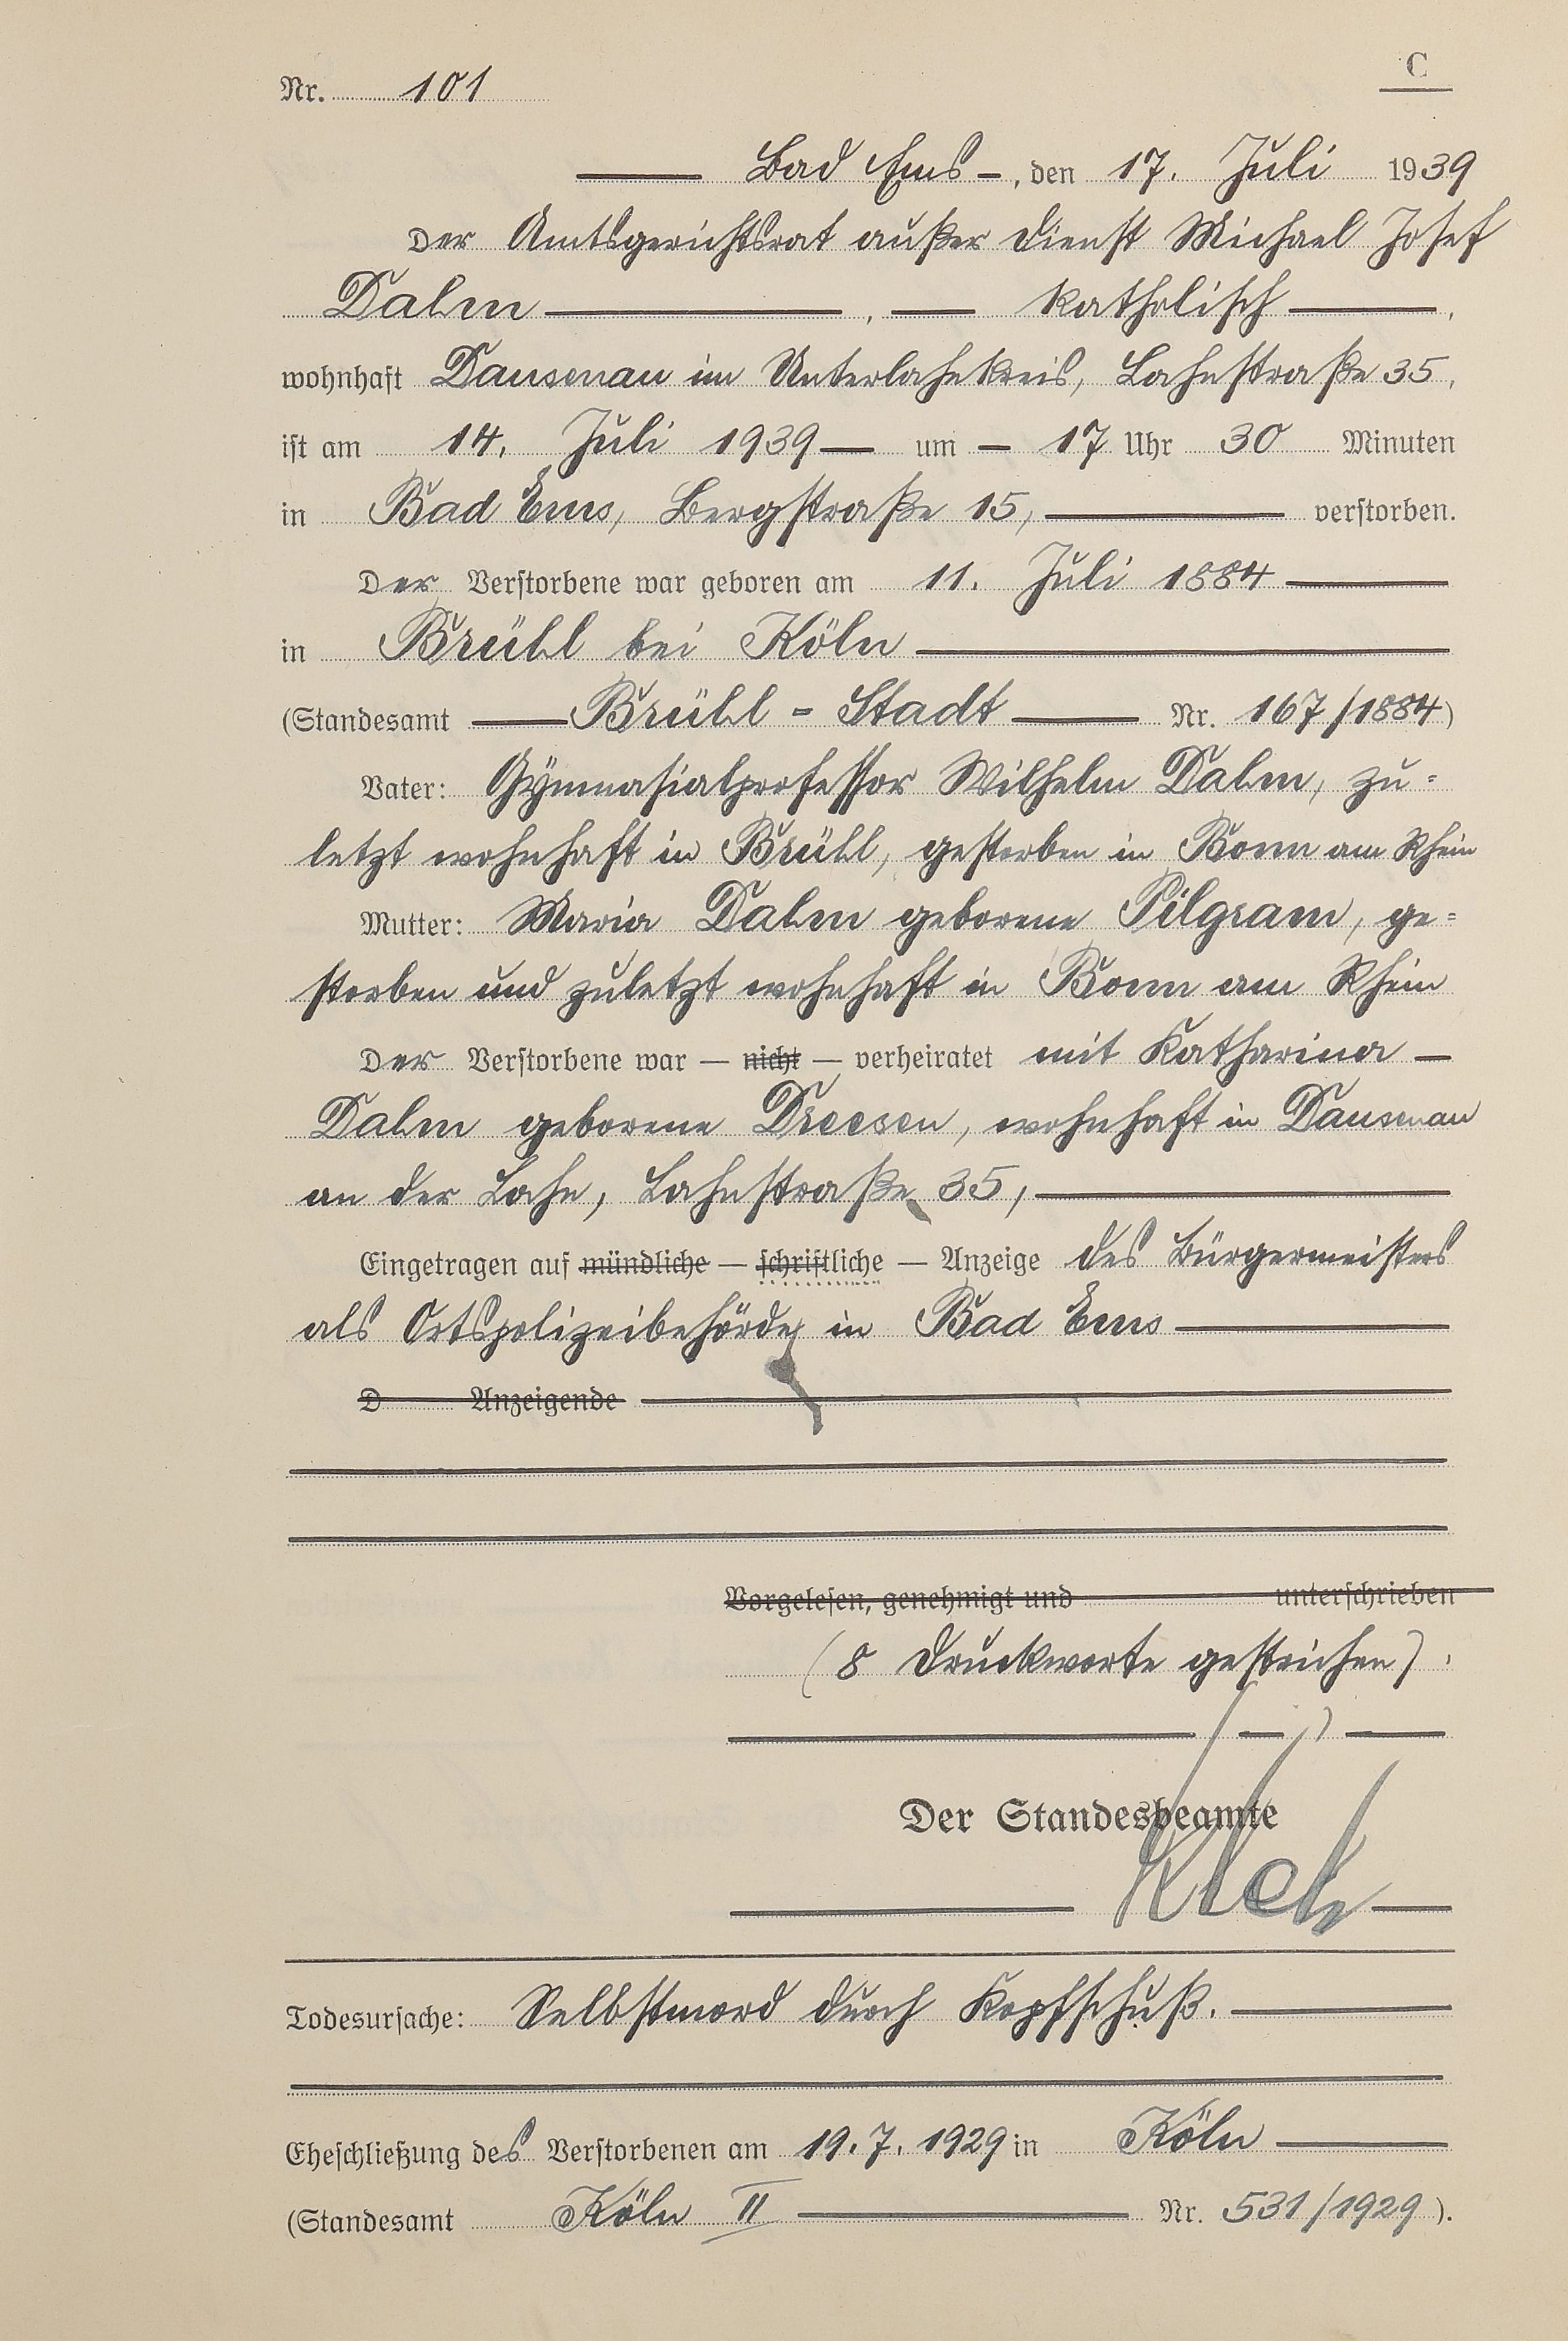 Nr. 101
C
Bad Ems -, den 17. Juli 1939
Der Amtsgerichtsrat außer Dienst Michael Josef
Dahm, katholisch,
wohnhaft Dausenau im Unterlahnkreis, Lahnstraße 35,
ist am 14. Juli 1939 um 17 Uhr 30 Minuten
in Bad Ems, Bergstraße 15, verstorben.
Der Verstorbene war geboren am 11. Juli 1884
in Brühl bei Köln
(Standesamt Brühl-Stadt Nr. 167/1884)
Vater: Gymnasialprofessor Wilhelm Dahm, zu-
letzt wohnhaft in Brühl, gestorben in Bonn am Rhein
Mutter: Maria Dahm geborene Pilgram, ge-
storben und zuletzt wohnhaft in Bonn am Rhein
Der Verstorbene war — nicht — verheiratet mit Katharina
Dahm geborene Dreesen, wohnhaft in Dausenau
an der Lahn, Lahnstraße 35,
Eingetragen auf mündliche — schriftliche — Anzeige des Bürgermeisters
als Ortspolizeibehörde in Bad Ems
D Anzeigende
Vorgelesen, genehmigt und unterschrieben
(8 Druckworte gestrichen)
Der Standesbeamte
Todesursache: Selbstmord durch Kopfschuß.
Eheschließung des Verstorbenen am 19.7.1929 in Köln
(Standesamt Köln II Nr. 531/1929).